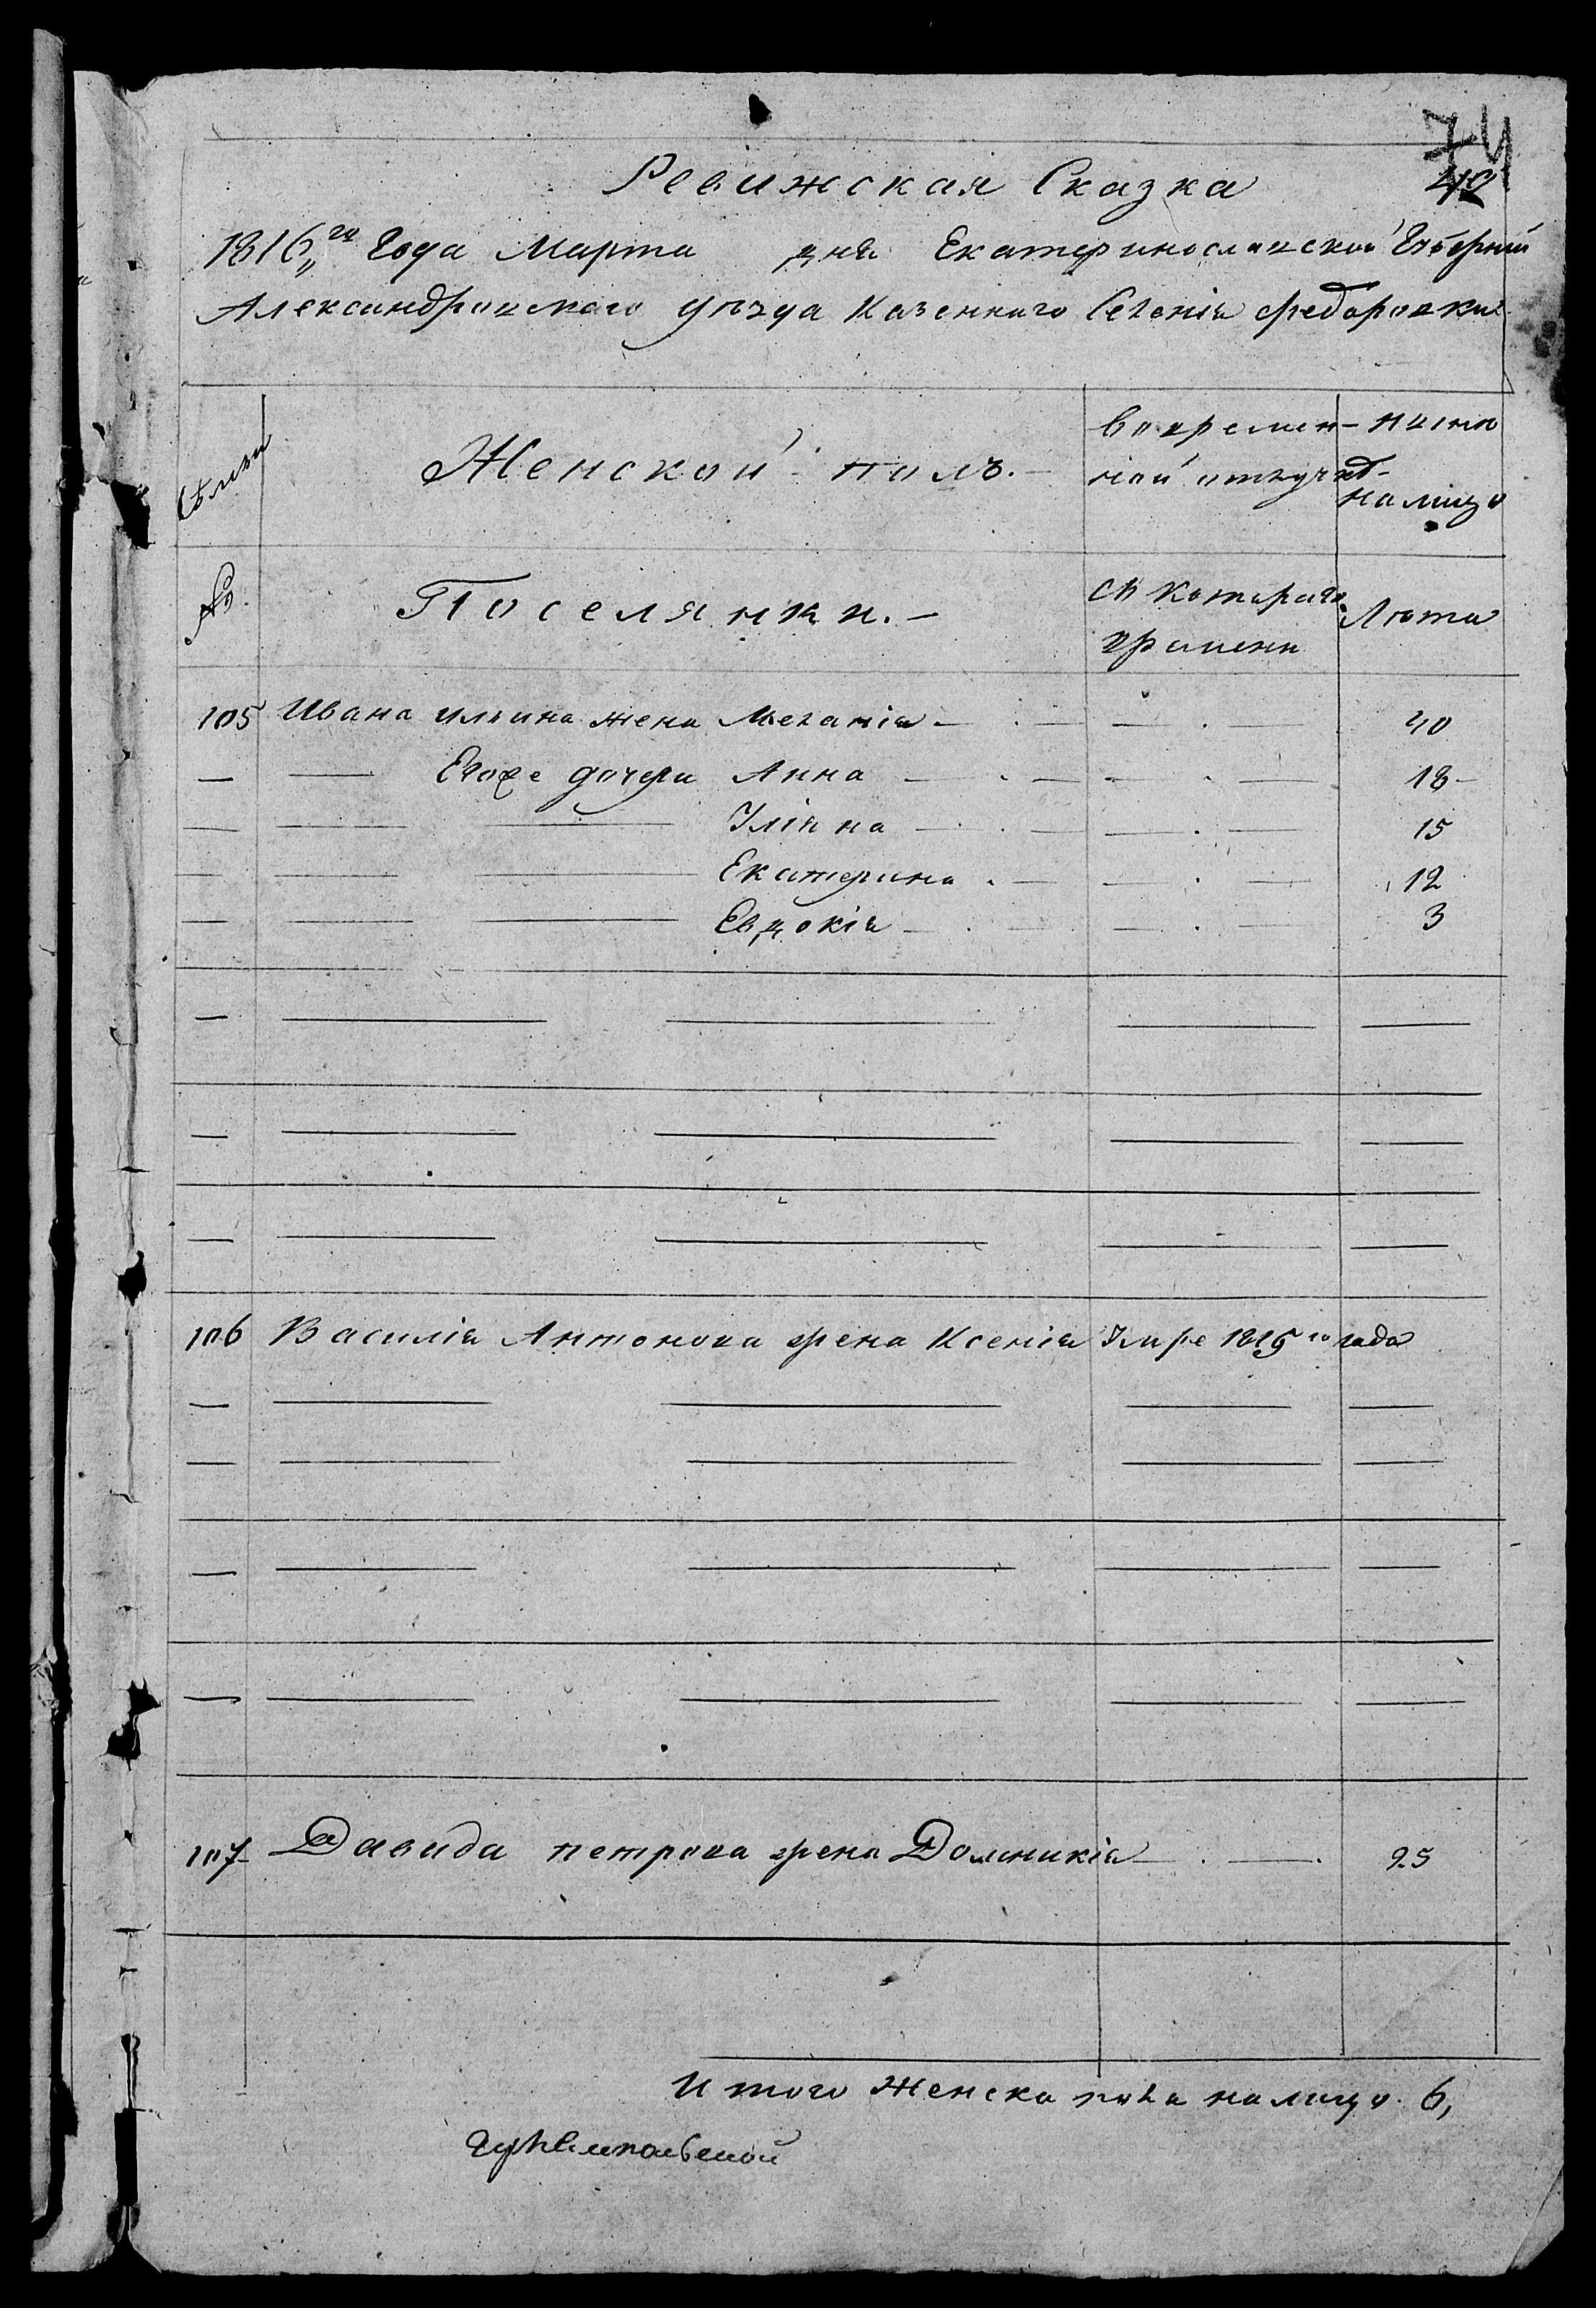 74
49
Ревижская Сказка
1816,, го Года Марта дня Екатеринославской Губерніи
Александровскаго уѣзда Казеннаго Селенія Федоровки
Семьи
Женской полъ.
Во времен-
ной отлучкѣ
ныне
налицо
№
Поселянки.
Съ котораго
времени
Лѣта
105 Ивана Ильина жена Меланія — 40
— — Егоже дочери Анна — 18
— — — Уліяна — 15
— — — Екатерина — 12
— — — Евдокія — 3
106 Василія Антонова жена Ксенія Умре 1815 го года
107 Давида петрова жена Домникія — 25
Итого Женска пола налицо 6,